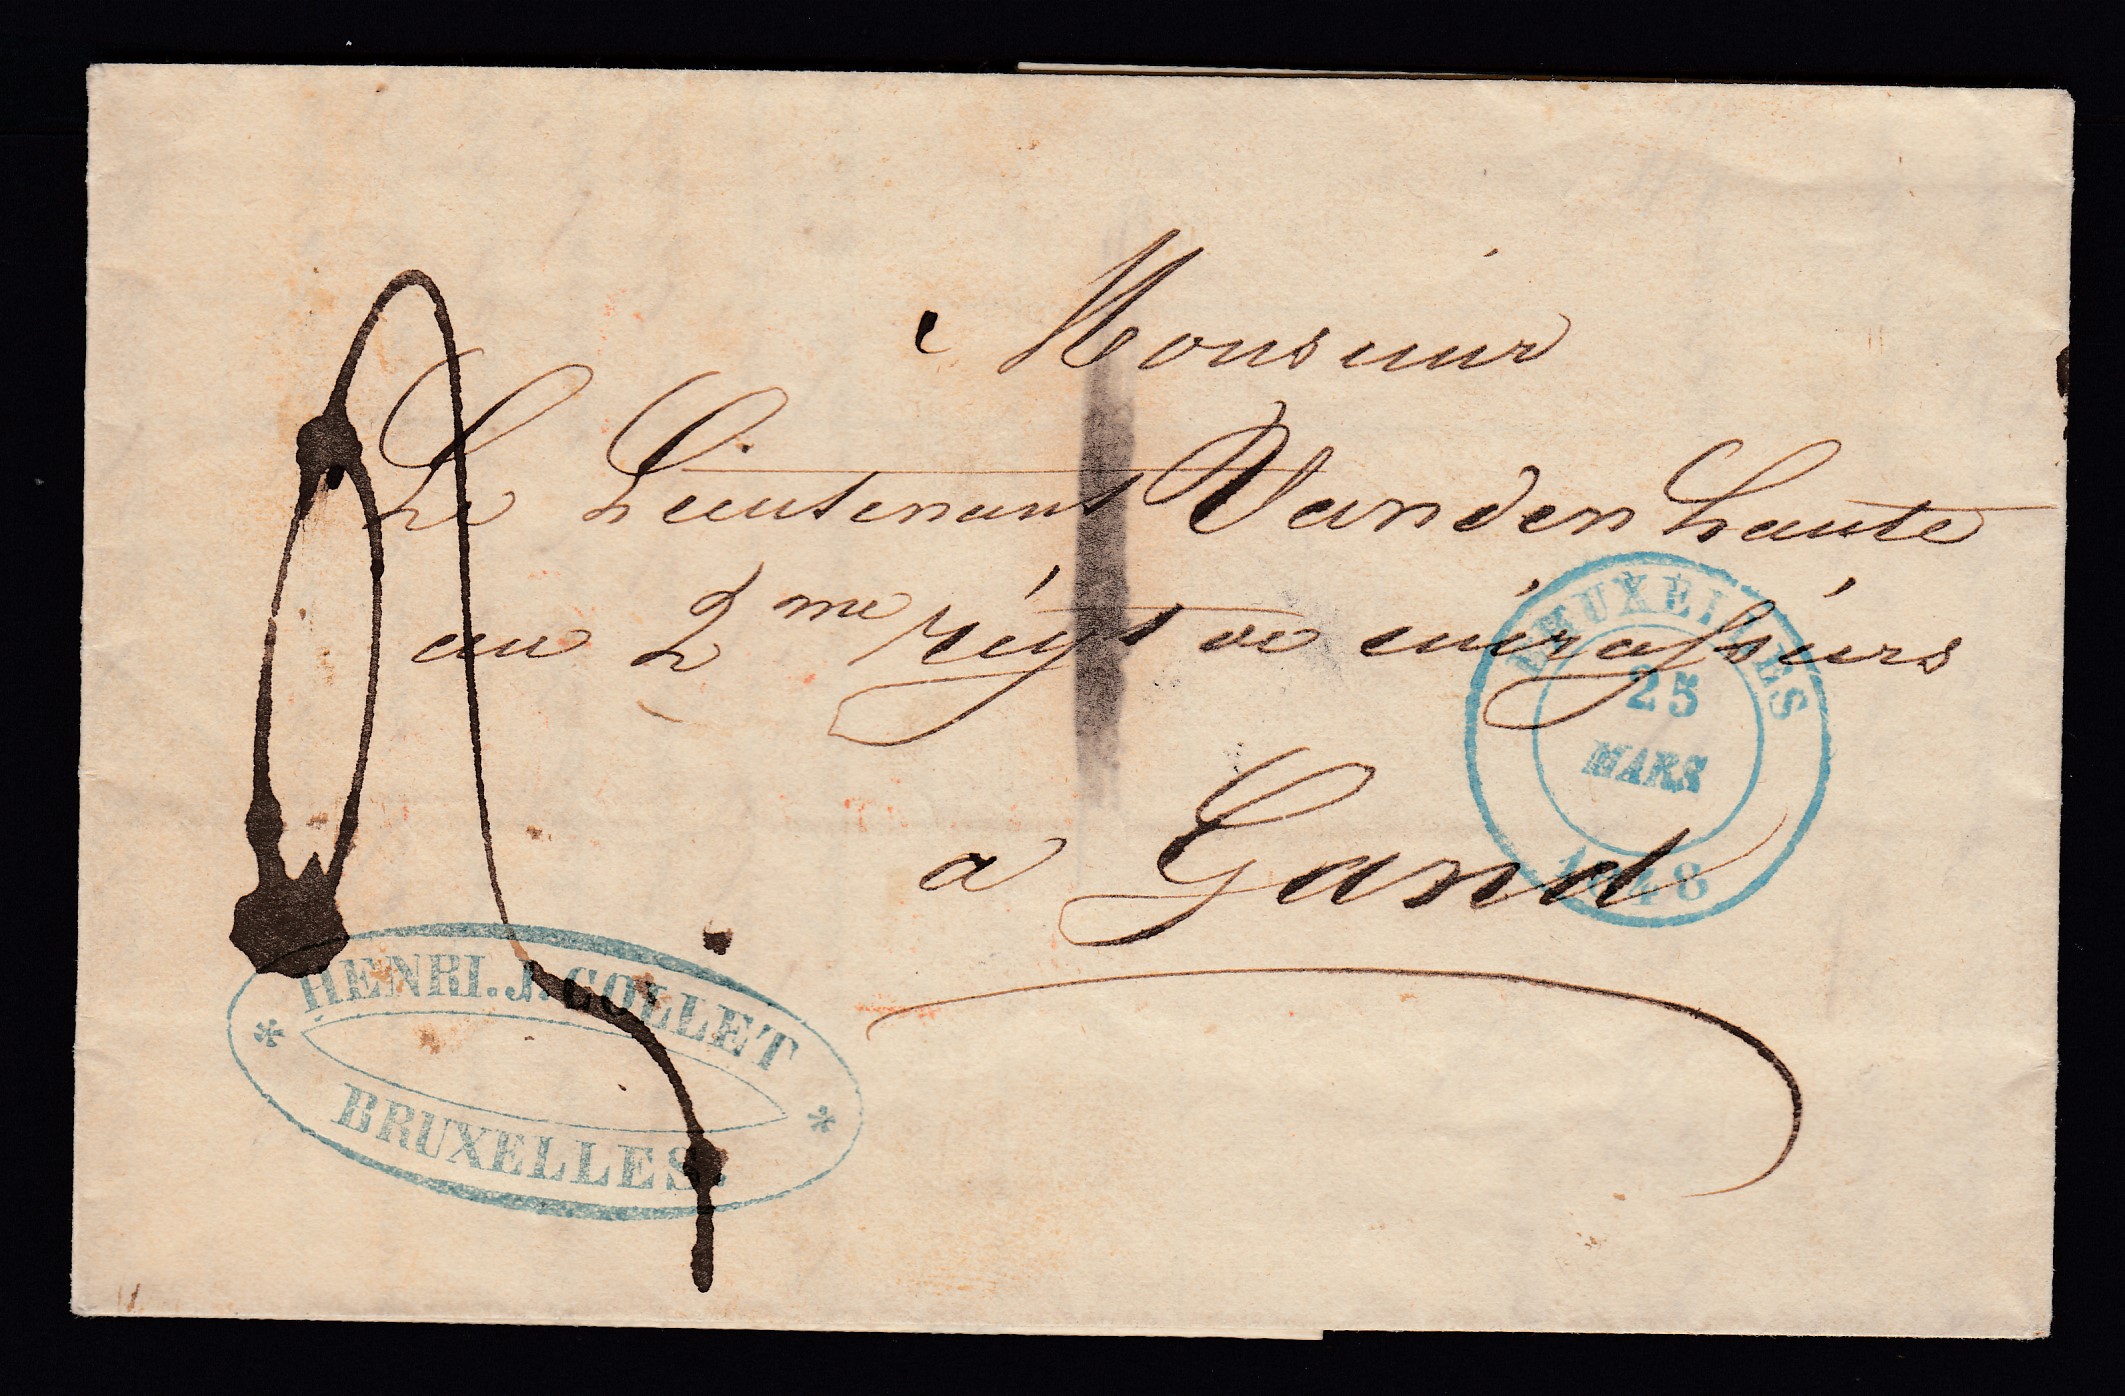 Monsieur
Le Lieutenant Vandenhaute
au 2me régt de cuirassiers
a Gand
BRUXELLES
25
MARS
1848
HENRI. J. COLLET
BRUXELLES.